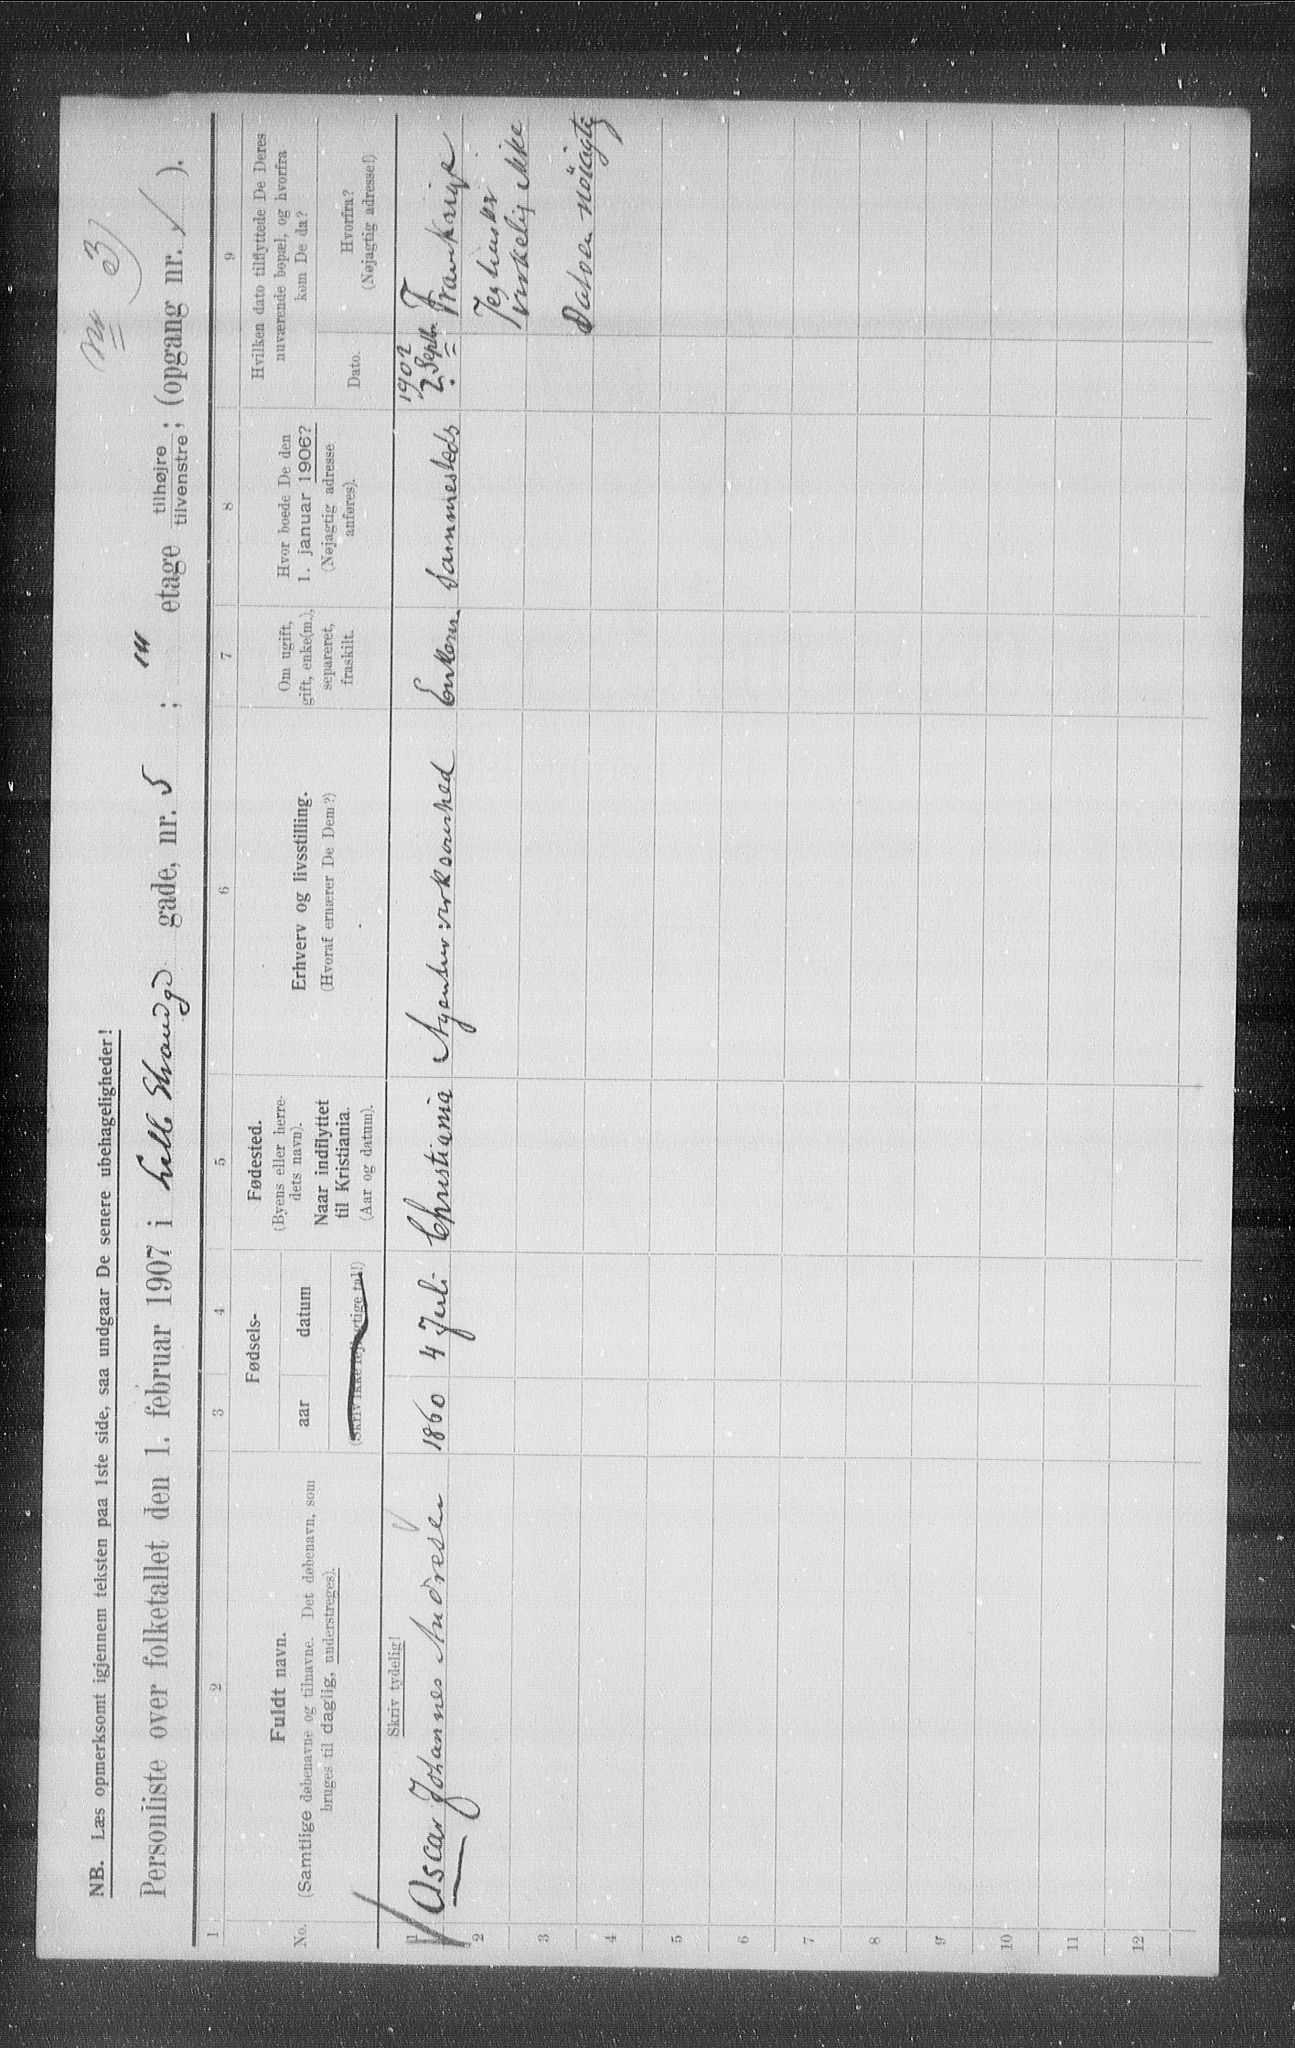 nr 3
NB. Læs opmerksomt igjennem teksten paa 1ste side, saa undgaar De senere ubehageligheder!
Personliste over folketallet den 1. februar 1907 i Lille Strandgd gade, nr. 5 ; etage tilhøjre/tilvenstre; (opgang nr. / ).
1 2 3 4 5 6 7 8 9
No.
Fuldt navn.
(Samtlige døbenavne og tilnavne. Det døbenavn, som
bruges til daglig, understreges).
Fødsels-
aar datum
(Skriv ikke fejlagtige tal!)
Fødested.
(Byens eller herre-
dets navn).
Naar indflyttet
til Kristiania.
(Aar og datum).
Erhverv og livsstilling.
(Hvoraf ernærer De Dem?)
Om ugift,
gift, enke(m.),
separeret,
fraskilt.
Hvor boede De den
1. januar 1906?
(Nøjagtig adresse
anføres).
Hvilken dato tilflyttede De Deres
nuværende bopæl, og hvorfra
kom De da?
Dato.
Hvorfra?
(Nøjagtig adresse!)
Skriv tydelig!
1 Oscar Johannes Andresen 1860 4 Juli Christiania Agentur virksomhed Enkem. Sammesteds 1902 2 Septb. Frankrige
2 Jeg husker
virkelig ikke
3 Datoen nöiagtig
4
5
6
7
8
9
10
11
12